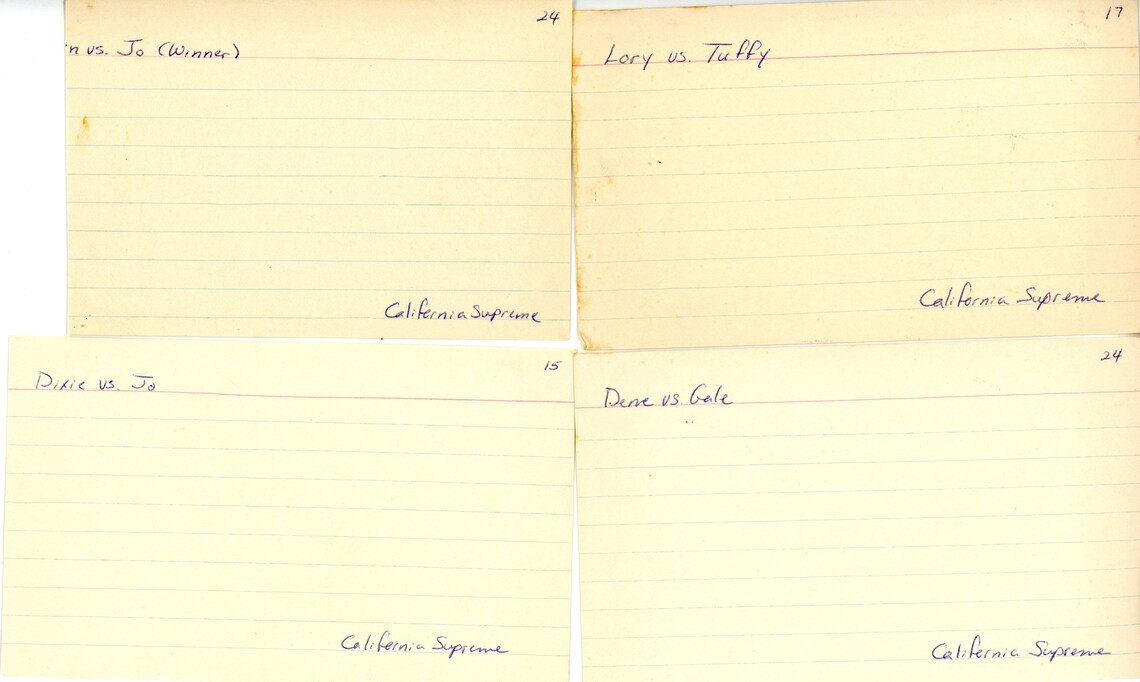 24
'n vs. Jo (Winner)
California Supreme
17
Lory vs. Tuffy
California Supreme
15
Dixie vs. Jo
California Supreme
24
Dene vs Gale
California Supreme